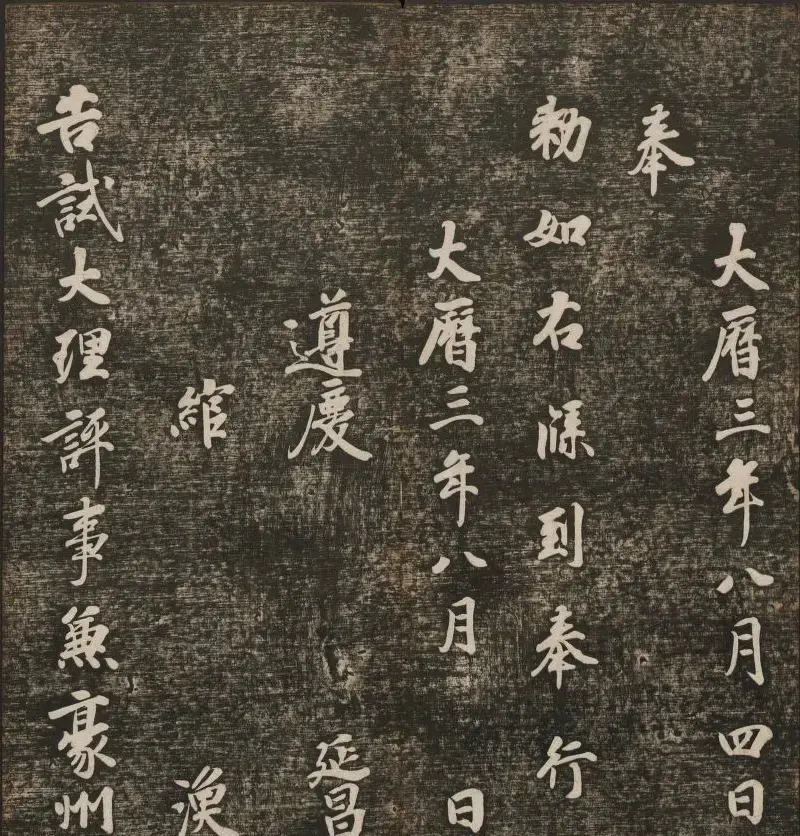 大曆三年八月四日
奉
勑如右牒到奉行
大曆三年八月 日
遵慶 延昌
綰 渙
告試大理評事兼豪州